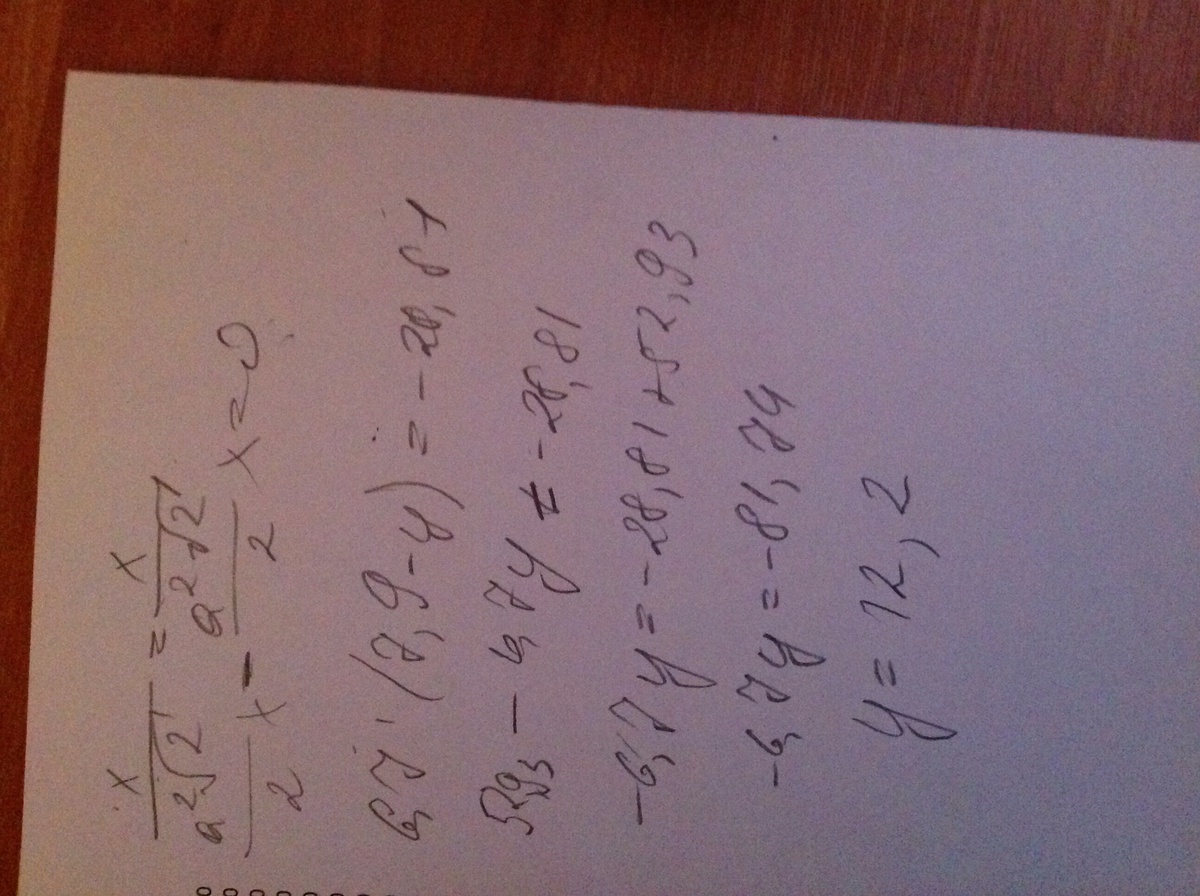 x/(a²√2) = x/(a²√2)
a²√2/2 x - a²√2/2 x = 0
6,7 · (7,9 - y) = -28,81
52,93 - 6,7y = -28,81
-6,7y = -28,81 + 52,93
-6,7y = -81,74
y = 12,2